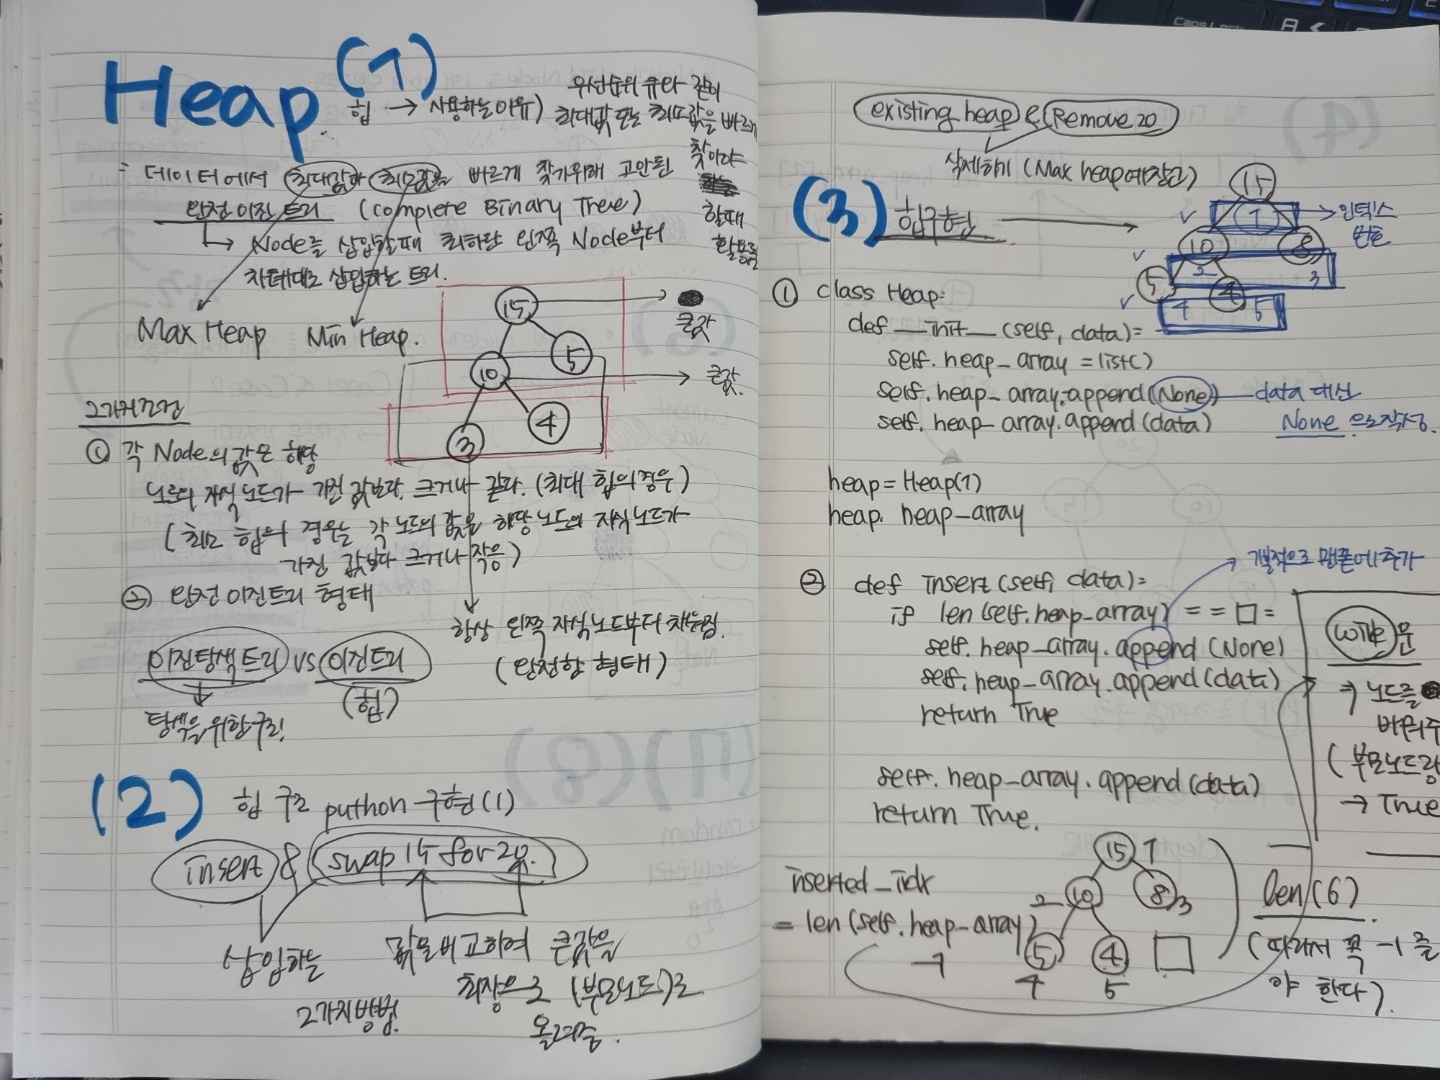 Heap (1)
힙 → 사용하는이유) 우선순위 큐와 같이
최대값 또는 최소값을 빠르게
찾아야
할때
활용됨
: 데이터에서 최대값과 최소값을 빠르게 찾기위해 고안된
완전 이진 트리 (Complete Binary Tree)
→ Node를 삽입할때 최하단 왼쪽 Node부터
차례대로 삽입하는 트리.
Max Heap Min Heap.
15 → 큰값
10 5 → 큰값.
3 4
2가지조건
① 각 Node의 값은 해당
노드의 자식 노드가 가진 값보다 크거나 같다. (최대 힙의 경우)
(최소 힙의 경우는 각 노드의 값은 해당 노드의 자식 노드가
가진 값보다 크거나 작음)
② 완전 이진트리 형태
항상 왼쪽 자식노드부터 채워짐.
(완전한 형태)
이진탐색트리 vs 이진트리
(힙)
탐색을 위한구조!
(2) 힙 구조 python 구현(1)
insert & swap 15 for 20.
삽입하는
2가지방법.
값을비교하여 큰값을
최상으로 (부모노드)로
올려줌.
existing heap & Remove 20
삭제하기 (Max heap에장점)
(3) 힙구현 →
15
1 → 인덱스
번호
10 8
2 3
5 4
4 5
① class Heap:
def __init__(self, data)=
self. heap_array = list()
self. heap_array.append(None) data 대신
self. heap_array.append(data) None 으로작성.
heap = Heap(1)
heap. heap_array
② def insert (self, data)= → 개별적으로 맨끝에추가
if len (self.heap_array) == □=
self. heap_array. append (None)
self. heap_array. append (data)
return True
self. heap_array. append (data)
return True.
while 문
→ 노드를
바꿔주
(부모노드랑
→ True
inserted_idx
= len (self. heap_array)
-1
15 1
2 10 8 3
5 4
4 5
len(6)
(따라서 꼭 -1 을
야 한다).